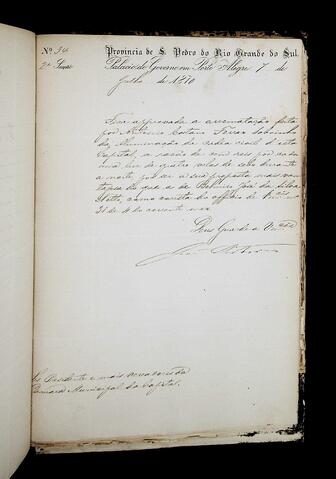 Nº 34
Provincia de S. Pedro do Rio Grande do Sul.
2ª Secção
Palacio do Governo em Porto Alegre 7 de
Julho de 1870
Fica approvada a arrematação feita
por Antonio Caetano Ferraz
da illuminação da cadea civil d'esta
Capital, a razão de cem reis por cada
uma luz de quatro velas de sebo durante
a noite, por ser a sua proposta mais van
tajosa que a de Belmiro José da Silva
Netto, como consta do officio de Vmcês nº
31 de 4 do corrente mez.
Deus Guarde a Vmcês
Srs. Presidente e mais vereadores da
Camara Municipal da Capital.